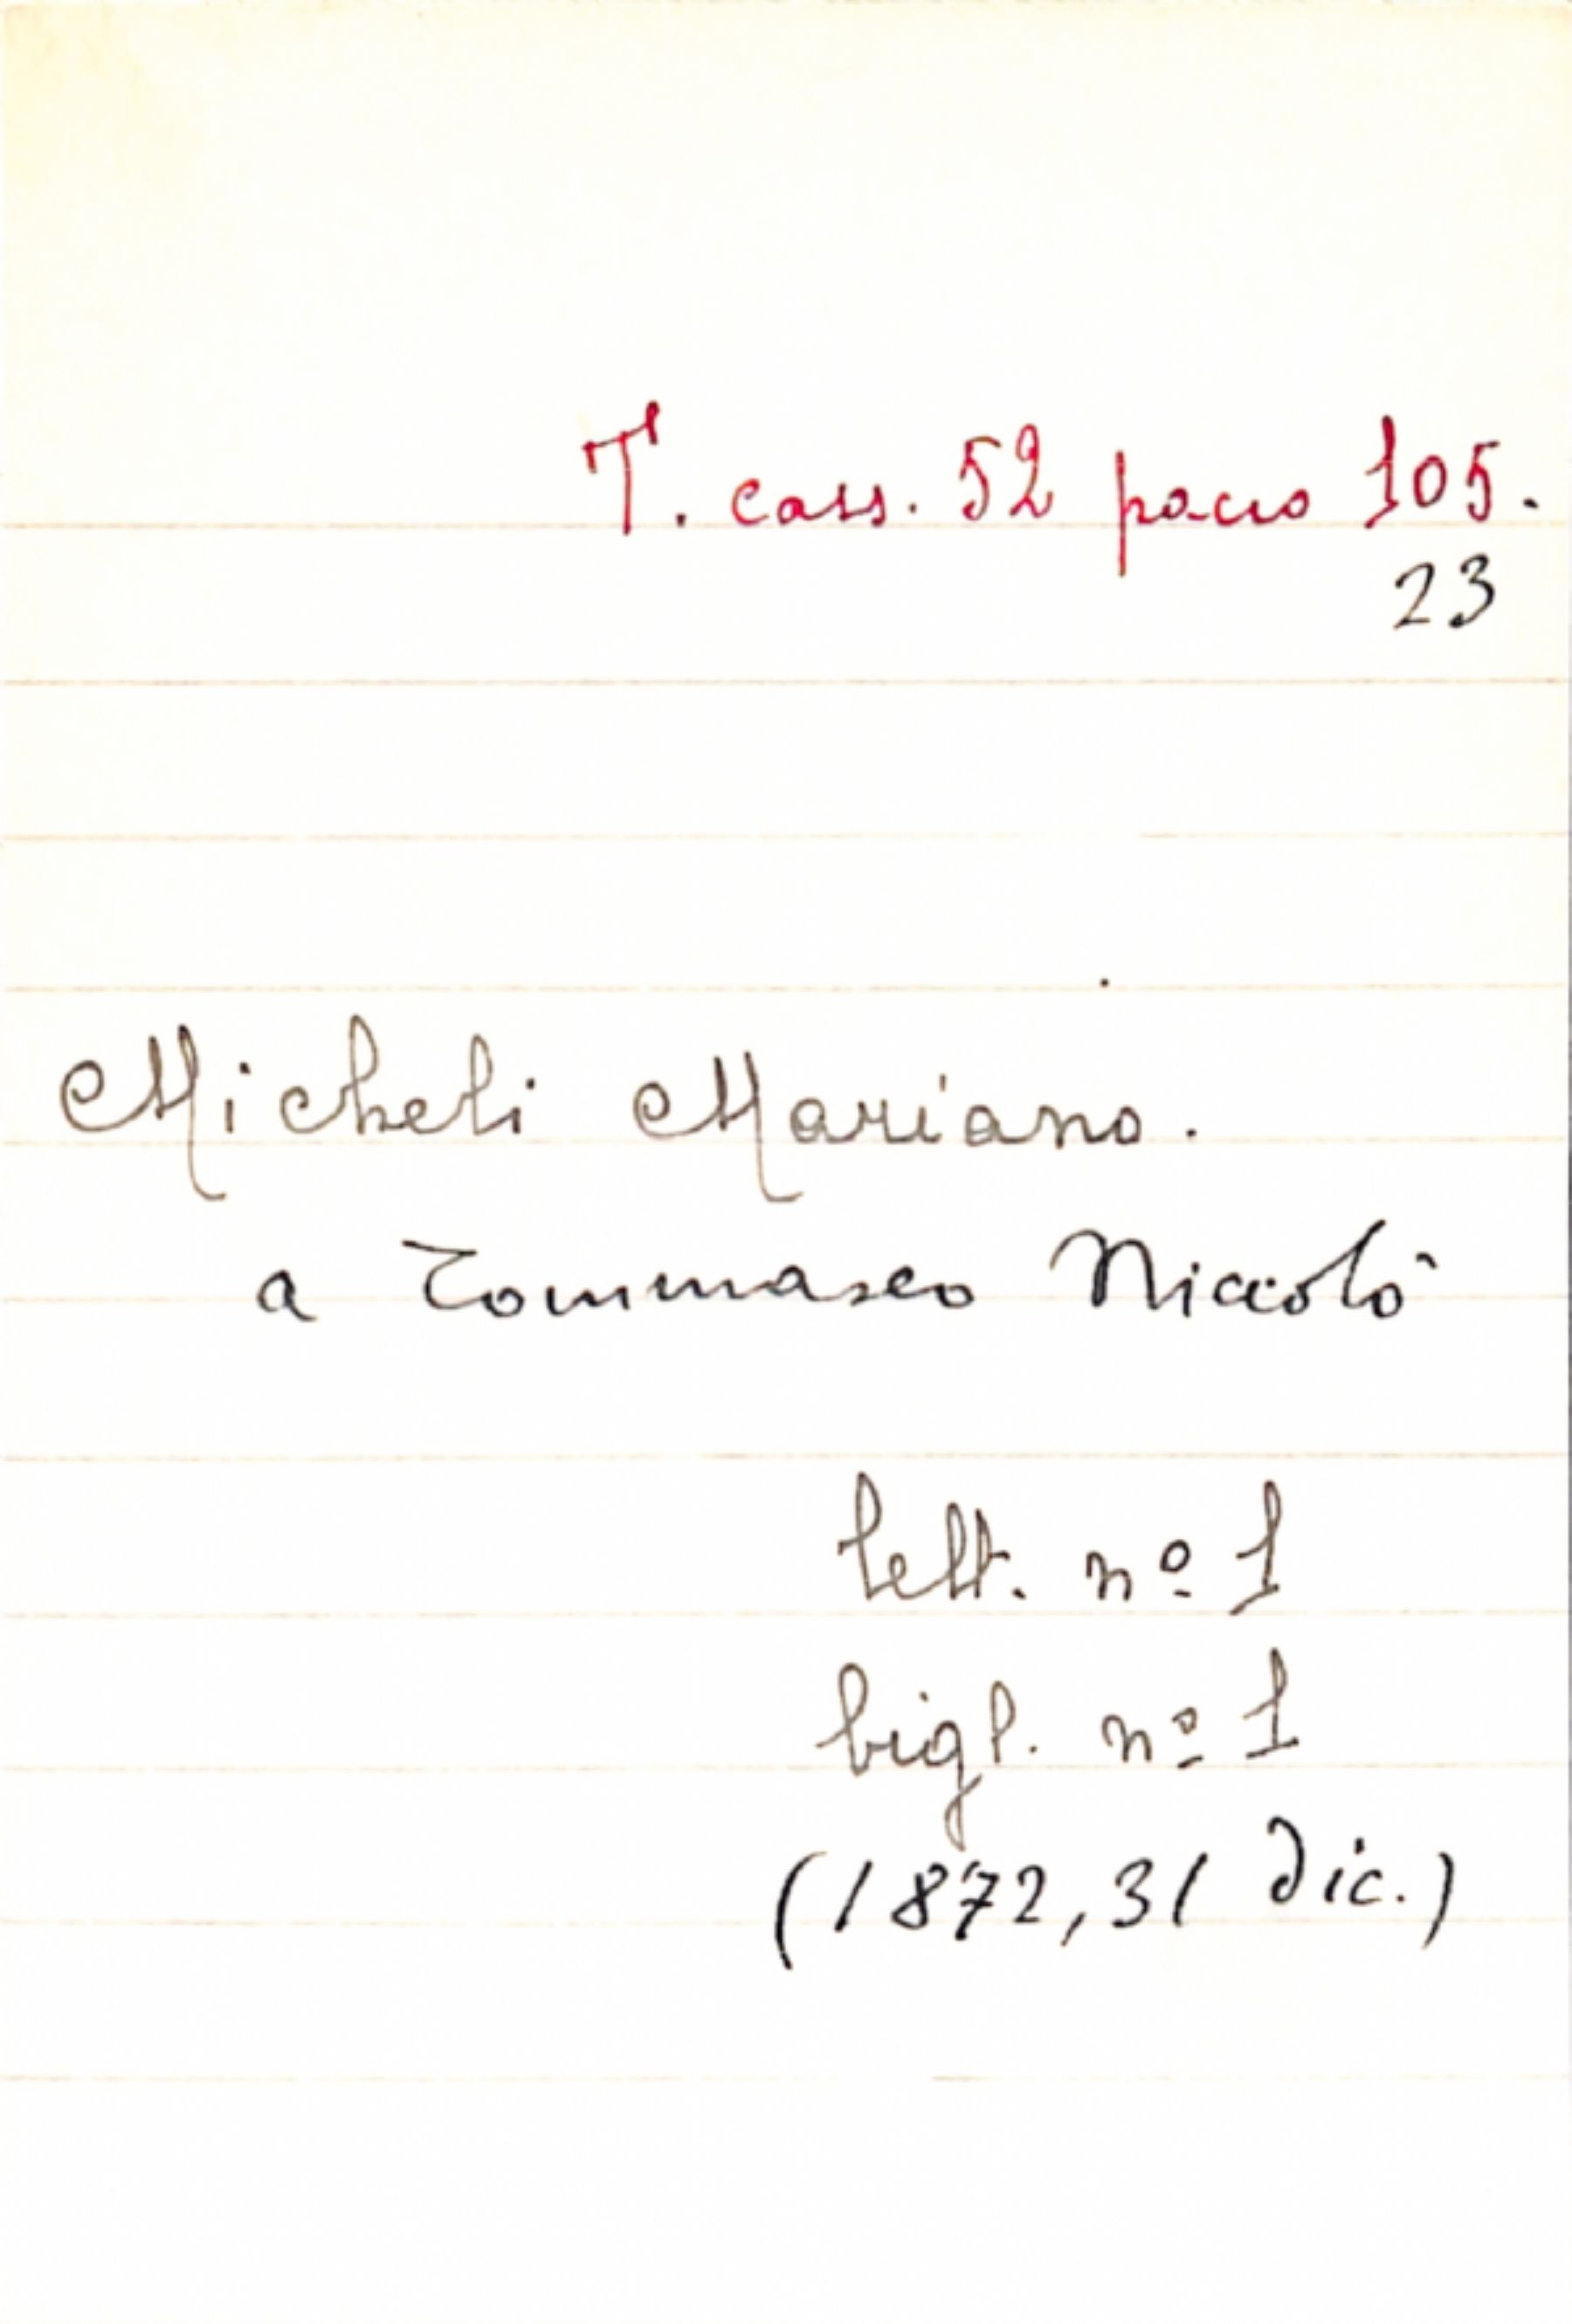 T. cass. 52 pacco 105.
23
Micheli Mariano.
a Tommaseo Niccolò
lett. nº 1
bigl. nº 1
(1872, 31 dic.)